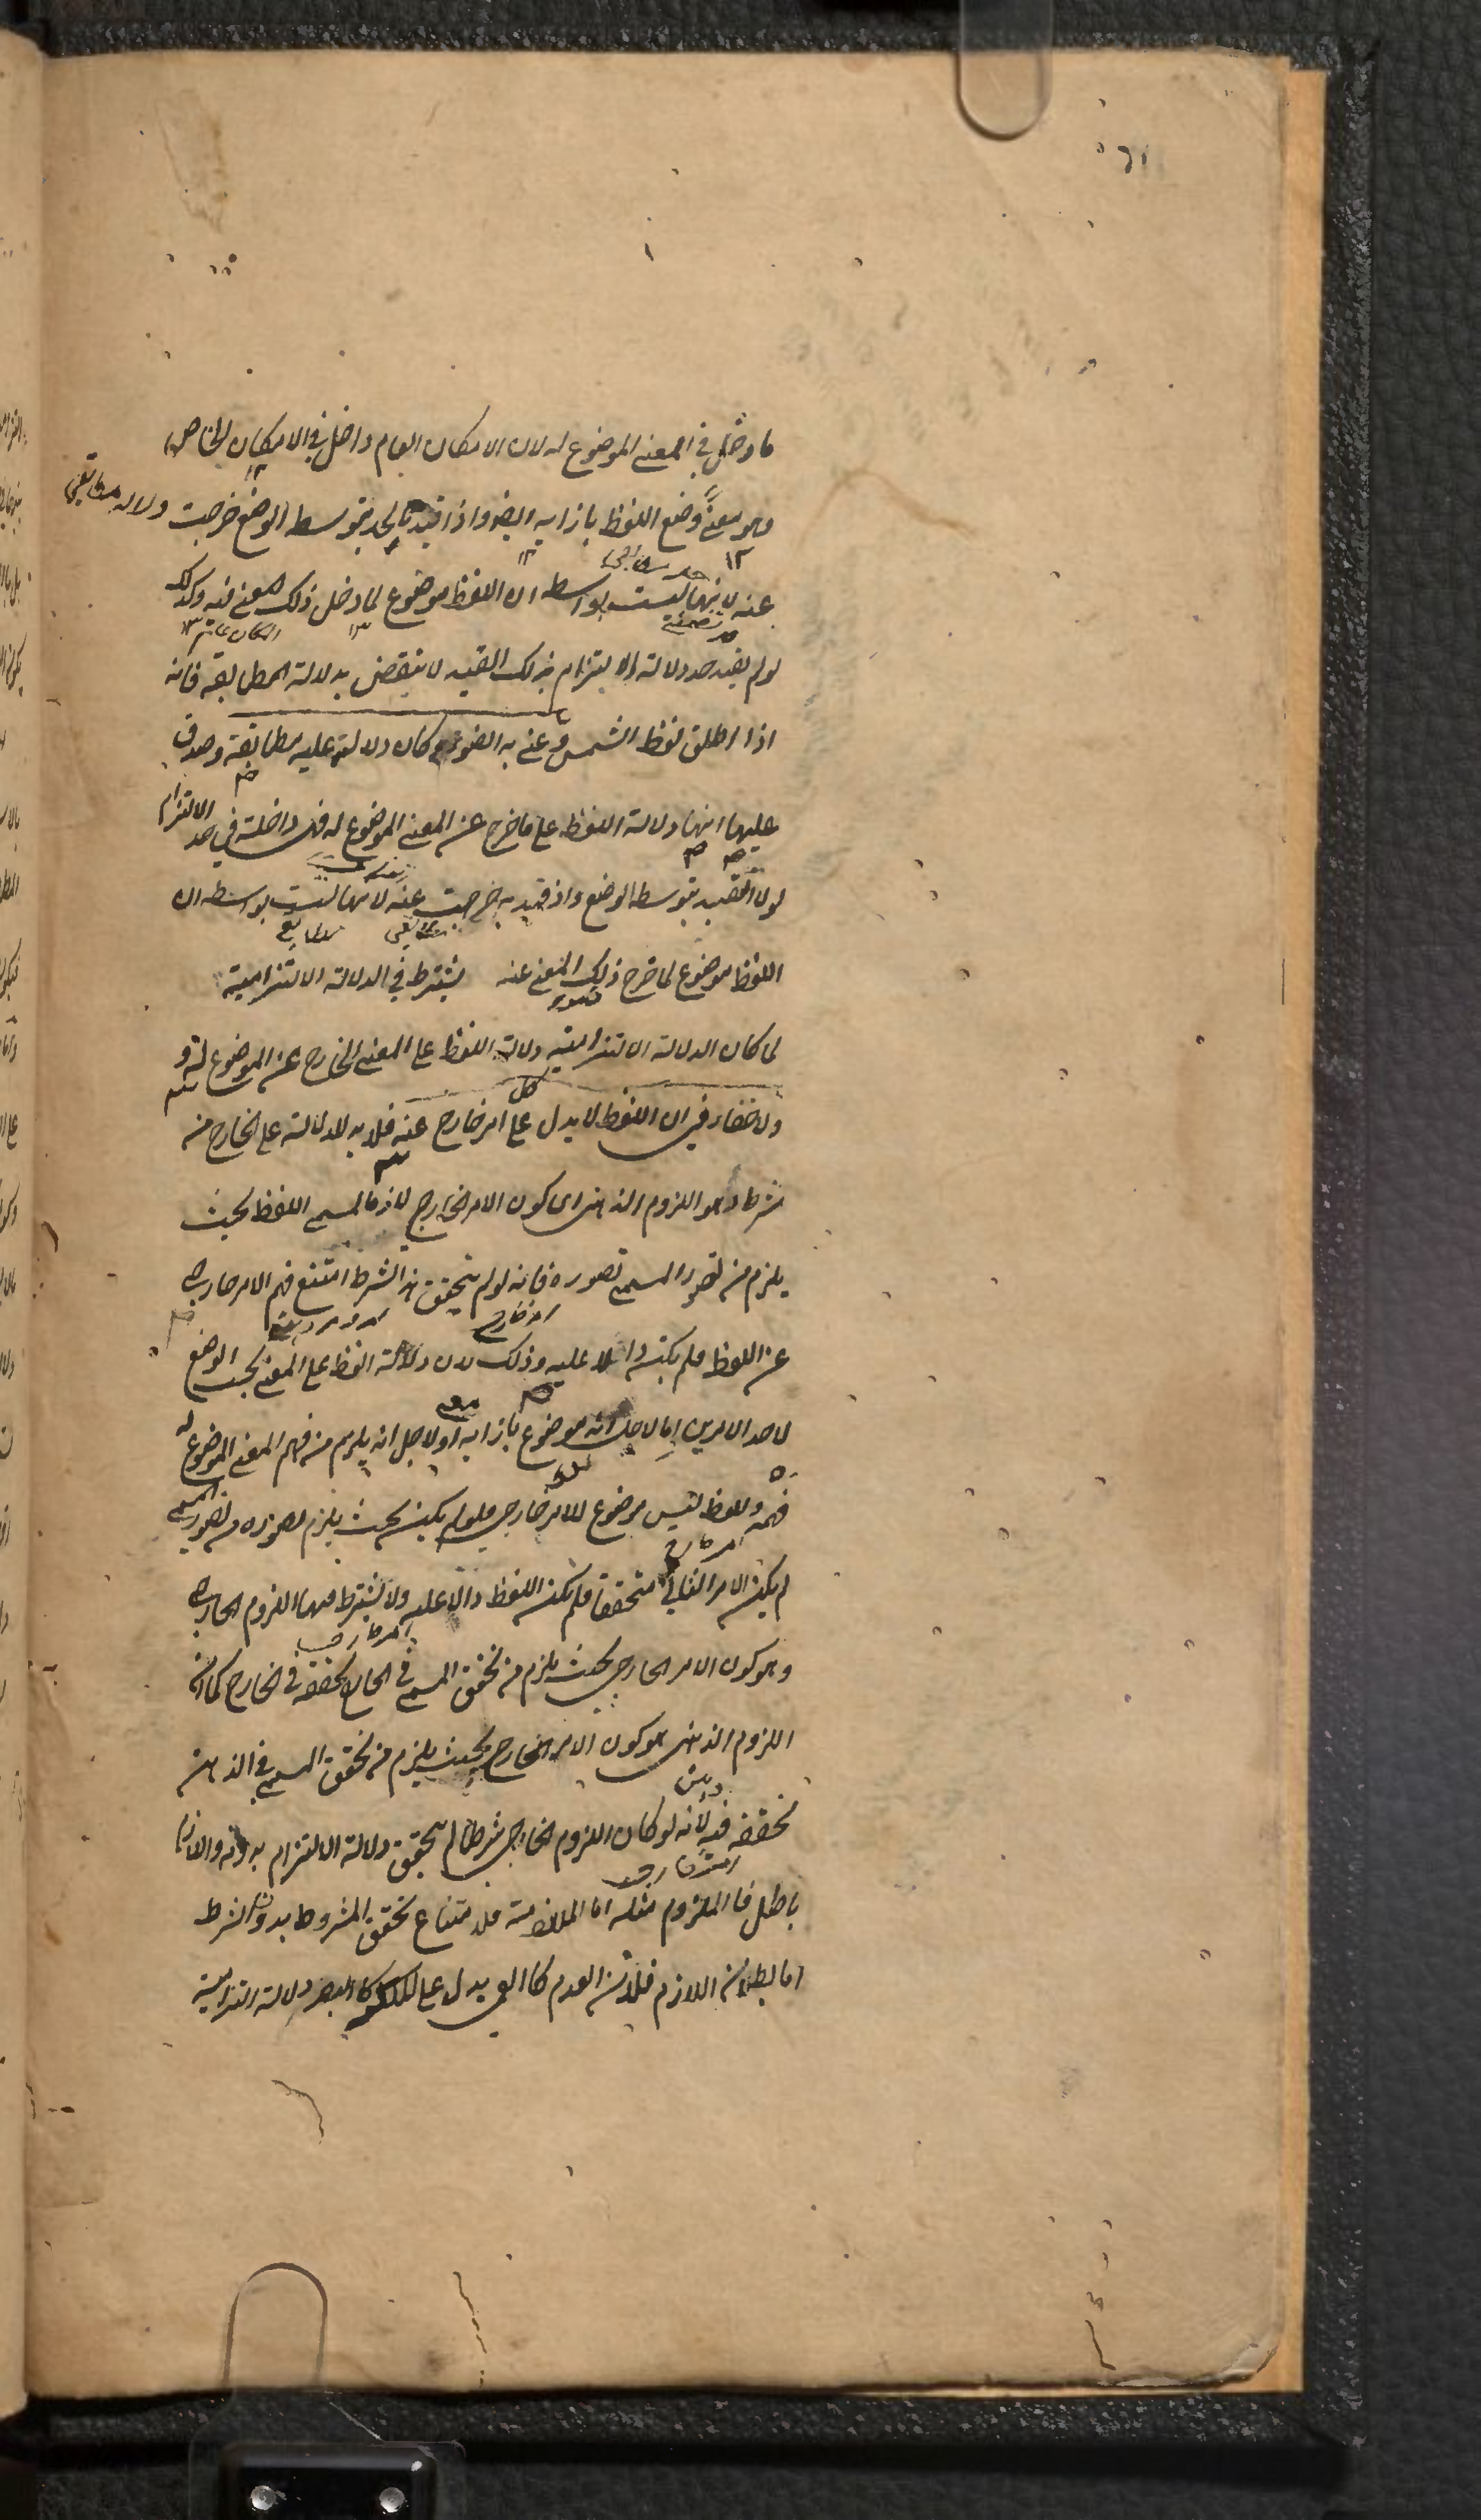 ما دخل في المعنى الموضوع له لان الامكان العام داخل في الامكان الخاص
وهو معنى وضع اللفظ بازايه ايضا واذا قيد الحد بتوسط الوضع خرجت دلالة مطابقي
عنه لانها ليست بواسطه ان اللفظ موضوع لما دخل ذلك المعنى فيه وكذلك
لو لم يقيد حد دلالة الالتزام بذلك القيد لانتقض بدلالة المطابقة فانه
اذا اطلق لفظ الشمس وعنى به الضوء كان دلالته عليه مطابقة وصدق
عليها انها دلالة اللفظ على ما خرج عن المعنى الموضوع له فهى داخلة في حد الالتزام
لولا التقييد بتوسط الوضع واذ قيد به خرجت عنه لانها ليست بواسطه ان
اللفظ موضوع لما خرج ذلك المعنى عنه يشترط في الدلالة الالتزامية
لما كان الدلالة الالتزامية دلالة اللفظ على المعنى الخارج عن الموضوع له و
ولا خفاء في ان اللفظ لا يدل على كل امر خارج عنه فلا بد للدلالة على الخارج من
شرط وهو اللزوم الذهنى اى كون الامر الخارج لازما لمسمى اللفظ بحيث
يلزم من تصور المسمى تصوره فانه لو لم يتحقق هذا الشرط امتنع فهم الامر خارجى
عن اللفظ فلم يكن دالا عليه وذلك لان دلالة اللفظ على المعنى بحسب الوضع
لاحد الامرين اما لاجل انه موضوع بازايه او لاجل انه يلزم من فهم المعنى الموضوع له
فهمه واللفظ ليس موضوع للامر خارجى فلو لم يكن بحيث يلزم تصوره من تصور المسمى
لم يكن الامر الثانى متحققا فلم يكن اللفظ دالا عليه ولا يشترط فيها اللزوم الخارجى
وهو كون الامر الخارجى بحيث يلزم من تحقق المسمى في الخارج تحققه في الخارج كما ان
اللزوم الذهنى هو كون الامر الخارج بحيث يلزم من تحقق المسمى في الذهن
تحققه فيه لانه لو كان اللزوم الخارجى شرطا لم يتحقق دلالة الالتزام بدونه واللازم
باطل فالملزوم مثله اما الملازمة فلامتناع تحقق المشروط بدون الشرط
اما بطلان اللازم فلان العدم كالعمى يدل على الملكة كالبصر دلالة التزامية